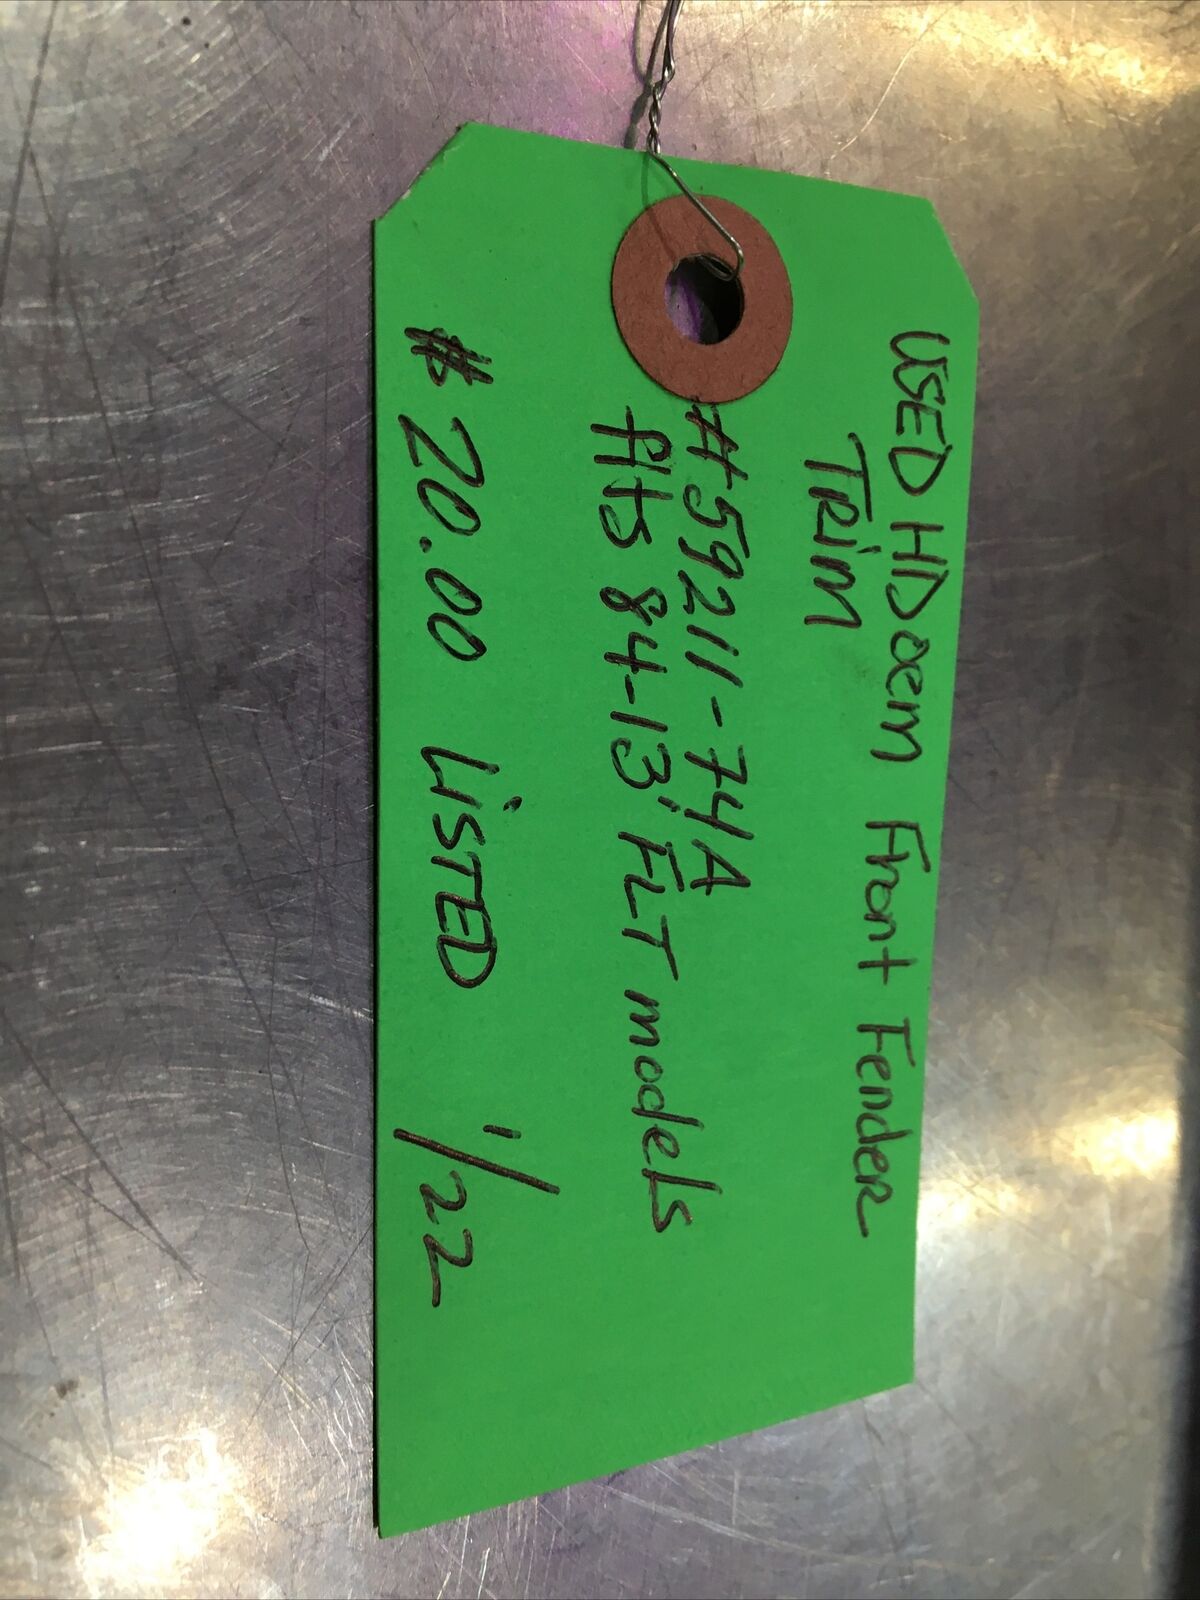 USED HD oem Front Fender
Trim
#59211-74A
fits 84-13' FLT models
$20.00 LiSTED 1/22